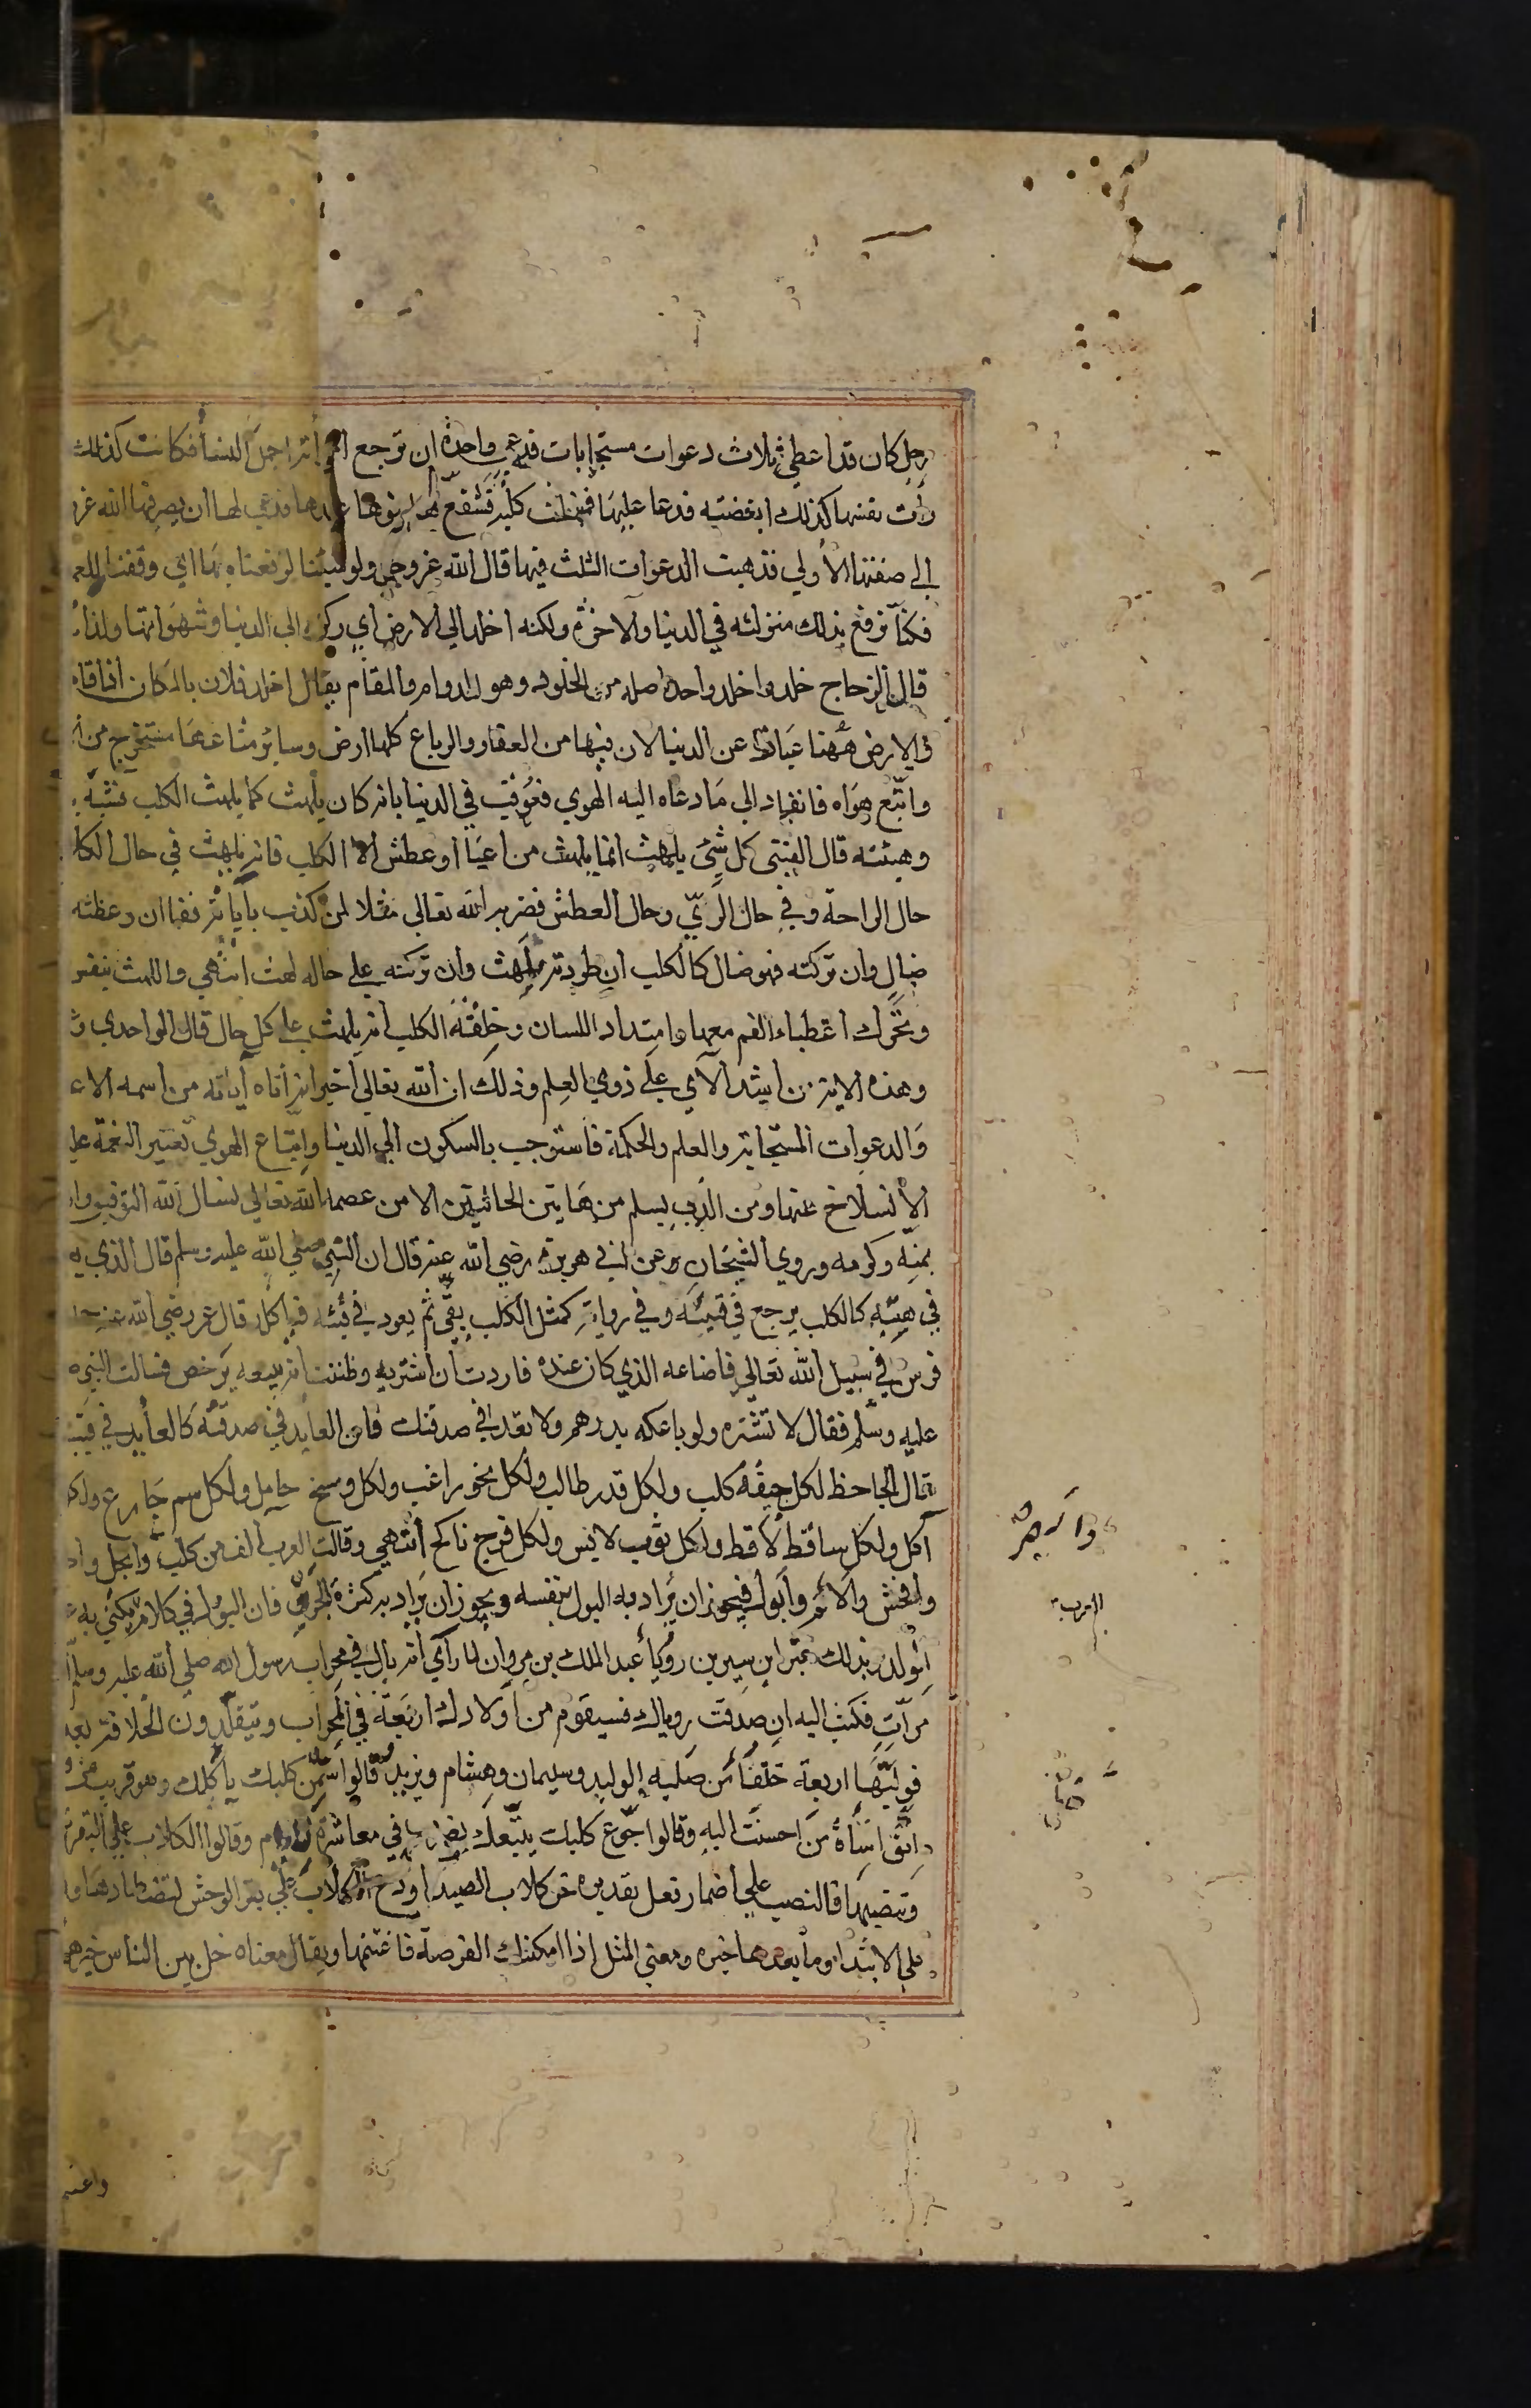 رجل كان قد اعطي ثلاث دعوات مستجابات فدعى واحدة ان ترجع امرأته اجمل النسأ فكانت كذلك
رأت نفسها كذلك ابغضته فدعا عليها فمسخت كلبة فشفع لها بنوها عندها فدعى لها ان يصرفها الله عز
الى صفتها الأولي فذهبت الدعوات الثلث فيها قال الله عز وجل ولو شيئنا لرفعناه بها اي وفقناه للعمل
فكنا نرفع بذلك منزلته في الدنيا والآخرة ولكنه اخلد الي الارض اي ركن الى الدنيا وشهواتها ولذا
قال الزجاج خلد واخلد واحد واصله من الخلود وهو الدوام والمقام يقال اخلد فلان بالمكان اذا قام
في الارض ههنا عبارة عن الدنيا لان فيها من العقار والرباع كلها ارض وسائر متاعها مستخرج من
واتبع هواه فانقاد الى ما دعاه اليه الهوي فعوقب في الدنيا بانه كان يلهث كما يلهث الكلب فشبه
وهيئته قال القتبى كل شئ يلهث انما يلهث من اعيا او عطش الا الكلب فانه يلهث في حال الكلا
حال الراحة وفي حال الريّ وحال العطش فضربه الله تعالى مثلا لمن كذب بآياته فقال ان وعظته
ضال وان تركته فهو ضال كالكلب ان طردته يلهث وان تركته على حاله لهث انتهى واللهث تنفس
وتحرك اعضاء الفم معها وامتداد اللسان وخلقة الكلب انه يلهث على كل حال قال الواحدي و
وهذه الاية من اشد الآي على ذوي العلم وذلك ان الله تعالى اخبر انه أتاه آياته من اسمه الاع
والدعوات المستجابة والعلم والحكمة فاستوجب بالسكون الى الدنيا واتباع الهوي تغيير النعمة علي
الانسلاخ عنها ومن الذي يسلم من هاتين الحالتين الا من عصمه الله تعالى نسال الله التوفيق وا
بمنه وكرمه وروي الشيخان عن ابي هريرة رضي الله عنه قال ان النبي صلي الله عليه وسلم قال الذي ي
في هبته كالكلب يرجع في قيئه وفي رواية كمثل الكلب يقئ ثم يعود في قيئه فياكله قال عمر رضي الله عنه حـ
فرس في سبيل الله تعالى فاضاعه الذي كان عنده فاردت ان اشتريه وظننت انه يبيعه برخص فسالت النبي ص
عليه وسلم فقال لا تشتره ولو باعكه بدرهم ولا تعد في صدقتك فان العايد في صدقته كالعايد في قيئه
قال الجاحظ لكل جيفة كلب ولكل قدر طالب ولكل نخور راغب ولكل وسخ حامل ولكل سم جارع ولكل
آكل ولكل ساقط لاقط ولكل ثوب لابس ولكل فرج ناكح انتهى وقالت العرب ألف من كلب وابخل وا
وافحش والأم وأبول فيجوز ان يراد به البول نفسه ويجوز ان يراد به كثرة الجرو فان البول في كلامهم يكني به
الولد وبذلك عبر ابن سيرين رؤيا عبد الملك بن مروان لما رآي انه بال في محراب رسول الله صلي الله عليه وسلم
مرات فكتب اليه ان صدقت روياك فسيقوم من اولادك اربعة في المحراب ويتقلدون الخلافة بعد
فوليها اربعة خلفا من صلبه الوليد وسليمان وهشام ويزيد وقالوا سمن كلبك يأكلك وهو قريب من
اتق اساة من احسنت اليه وقالوا جوع كلبك يتبعك يضرب في معاشرة اللئام وقالوا الكلاب على البقر
وتنصبها فالنصب على اضمار فعل تقديره خل كلاب الصيد او دع الكلاب على بقر الوحش لتصطادها وا
على الابتدا وما بعدها خبره ومعني المثل اذا امكنتك الفرصة فاغتنمها ويقال معناه خل بين الناس خيرهم